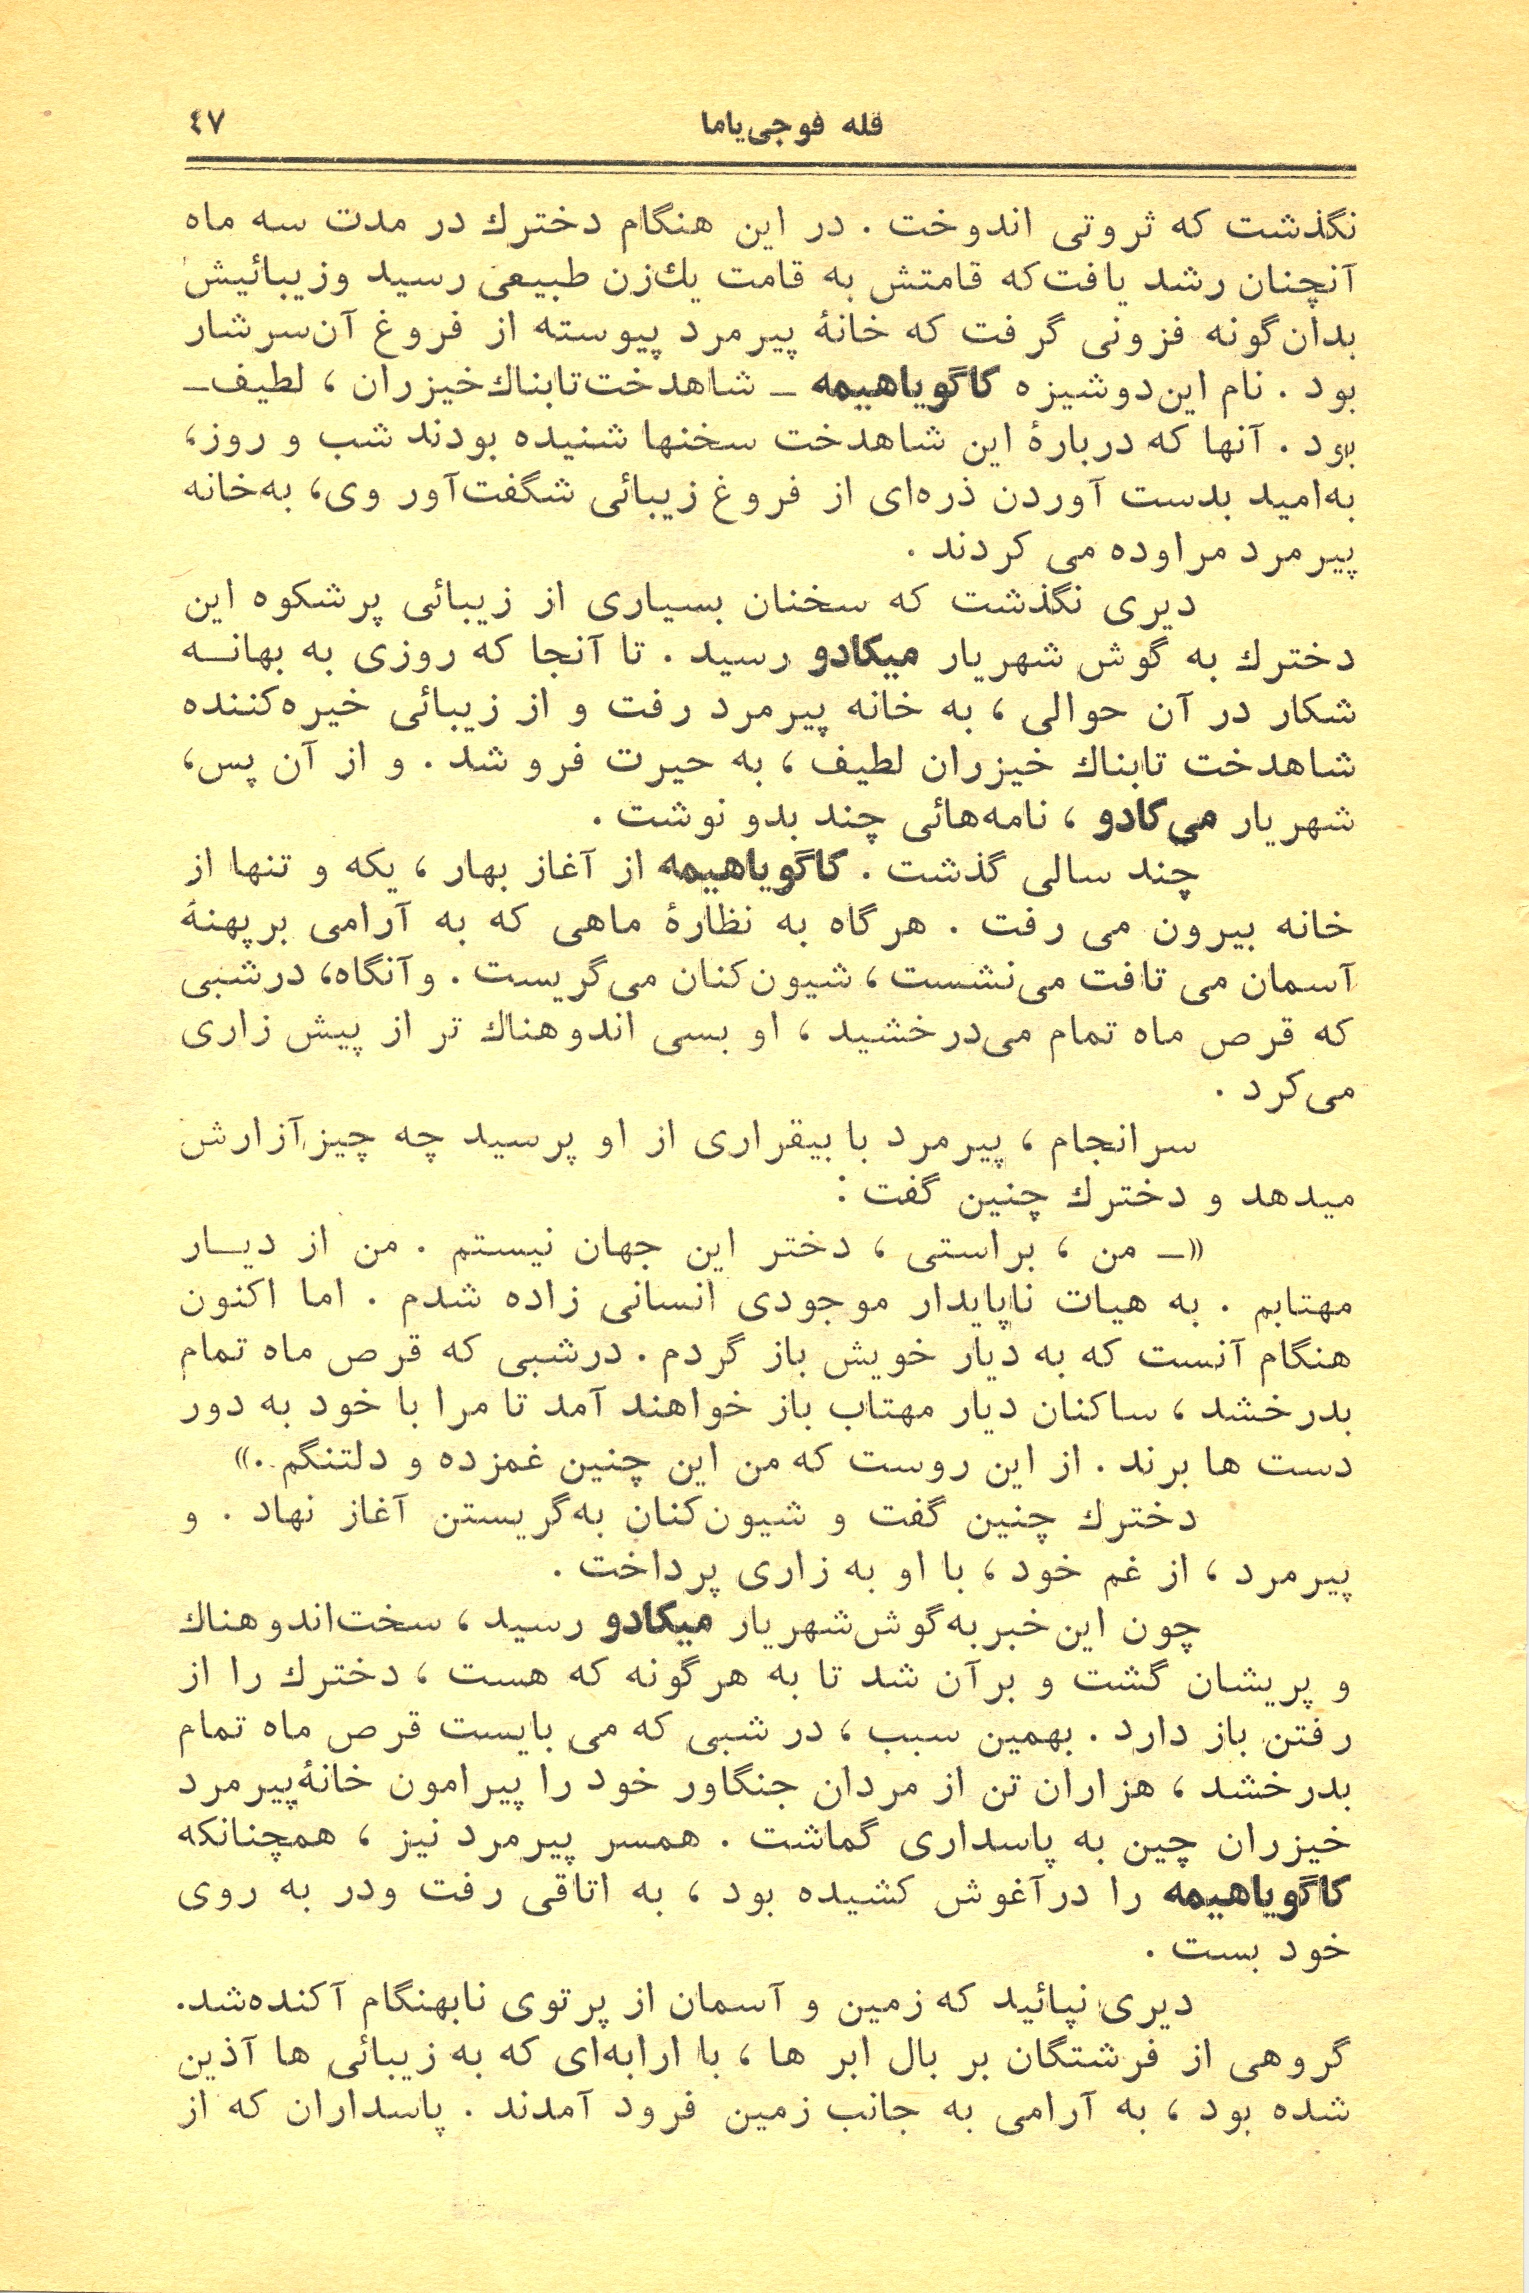 قله فوجی‌یاما
٤٧
نگذشت که ثروتی اندوخت . در این هنگام دخترك در مدت سه ماه
آنچنان رشد یافت‌که قامتش به قامت یك‌زن طبیعی رسید وزیبائیش
بدان‌گونه فزونی گرفت که خانهٔ پیرمرد پیوسته از فروغ آن‌سرشار
بود . نام این‌دوشیزه کاگویاهیمه ـ شاهدخت‌تابناك‌خیزران ، لطیف‌ـ
بود . آنها که دربارهٔ این شاهدخت سخنها شنیده بودند شب و روز،
به‌امید بدست آوردن ذره‌ای از فروغ زیبائی شگفت‌آور وی، به‌خانه
پیرمرد مراوده می کردند .
دیری نگذشت که سخنان بسیاری از زیبائی پرشکوه این
دخترك به گوش شهریار میکادو رسید . تا آنجا که روزی به بهانـه
شکار در آن حوالی ، به خانه پیرمرد رفت و از زیبائی خیره‌کننده
شاهدخت تابناك خیزران لطیف ، به حیرت فرو شد . و از آن پس،
شهریار می‌کادو ، نامه‌هائی چند بدو نوشت .
چند سالی گذشت . کاگویاهیمه از آغاز بهار ، یکه و تنها از
خانه بیرون می رفت . هرگاه به نظارهٔ ماهی که به آرامی برپهنهٔ
آسمان می تافت می‌نشست ، شیون‌کنان می‌گریست . وآنگاه، درشبی
که قرص ماه تمام می‌درخشید ، او بسی اندوهناك تر از پیش زاری
می‌کرد .
سرانجام ، پیرمرد با بیقراری از او پرسید چه چیزآزارش
میدهد و دخترك چنین گفت :
«ـ من ، براستی ، دختر این جهان نیستم . من از دیـار
مهتابم . به هیات ناپایدار موجودی انسانی زاده شدم . اما اکنون
هنگام آنست که به دیار خویش باز گردم . درشبی که قرص ماه تمام
بدرخشد ، ساکنان دیار مهتاب باز خواهند آمد تا مرا با خود به دور
دست ها برند . از این روست که من این چنین غمزده و دلتنگم .»
دخترك چنین گفت و شیون‌کنان به‌گریستن آغاز نهاد . و
پیرمرد ، از غم خود ، با او به زاری پرداخت .
چون این‌خبر به‌گوش‌شهریار میکادو رسید ، سخت‌اندوهناك
و پریشان گشت و برآن شد تا به هرگونه که هست ، دخترك را از
رفتن باز دارد . بهمین سبب ، در شبی که می بایست قرص ماه تمام
بدرخشد ، هزاران تن از مردان جنگاور خود را پیرامون خانهٔ‌پیرمرد
خیزران چین به پاسداری گماشت . همسر پیرمرد نیز ، همچنانکه
کاگویاهیمه را درآغوش کشیده بود ، به اتاقی رفت ودر به روی
خود بست .
دیری نپائید که زمین و آسمان از پرتوی نابهنگام آکنده‌شد.
گروهی از فرشتگان بر بال ابر ها ، با ارابه‌ای که به زیبائی ها آذین
شده بود ، به آرامی به جانب زمین فرود آمدند . پاسداران که از